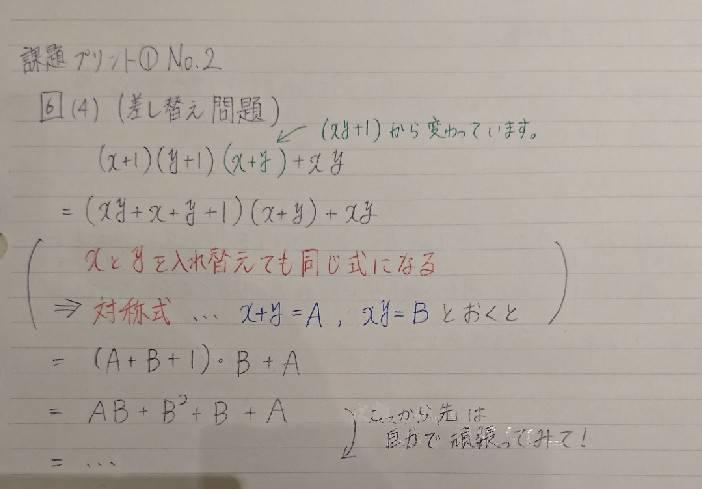 課題プリント① No.2
6 (4) (差し替え問題)
(xy+1)から変わっています。
(x+1)(y+1)(x+y)+xy
= (xy+x+y+1)(x+y)+xy
xとyを入れ替えても同じ式になる
⇒ 対称式 … x+y=A, xy=B とおくと
= (A+B+1)・B+A
= AB+B²+B+A
ここから先は
自力で頑張ってみて!
= …